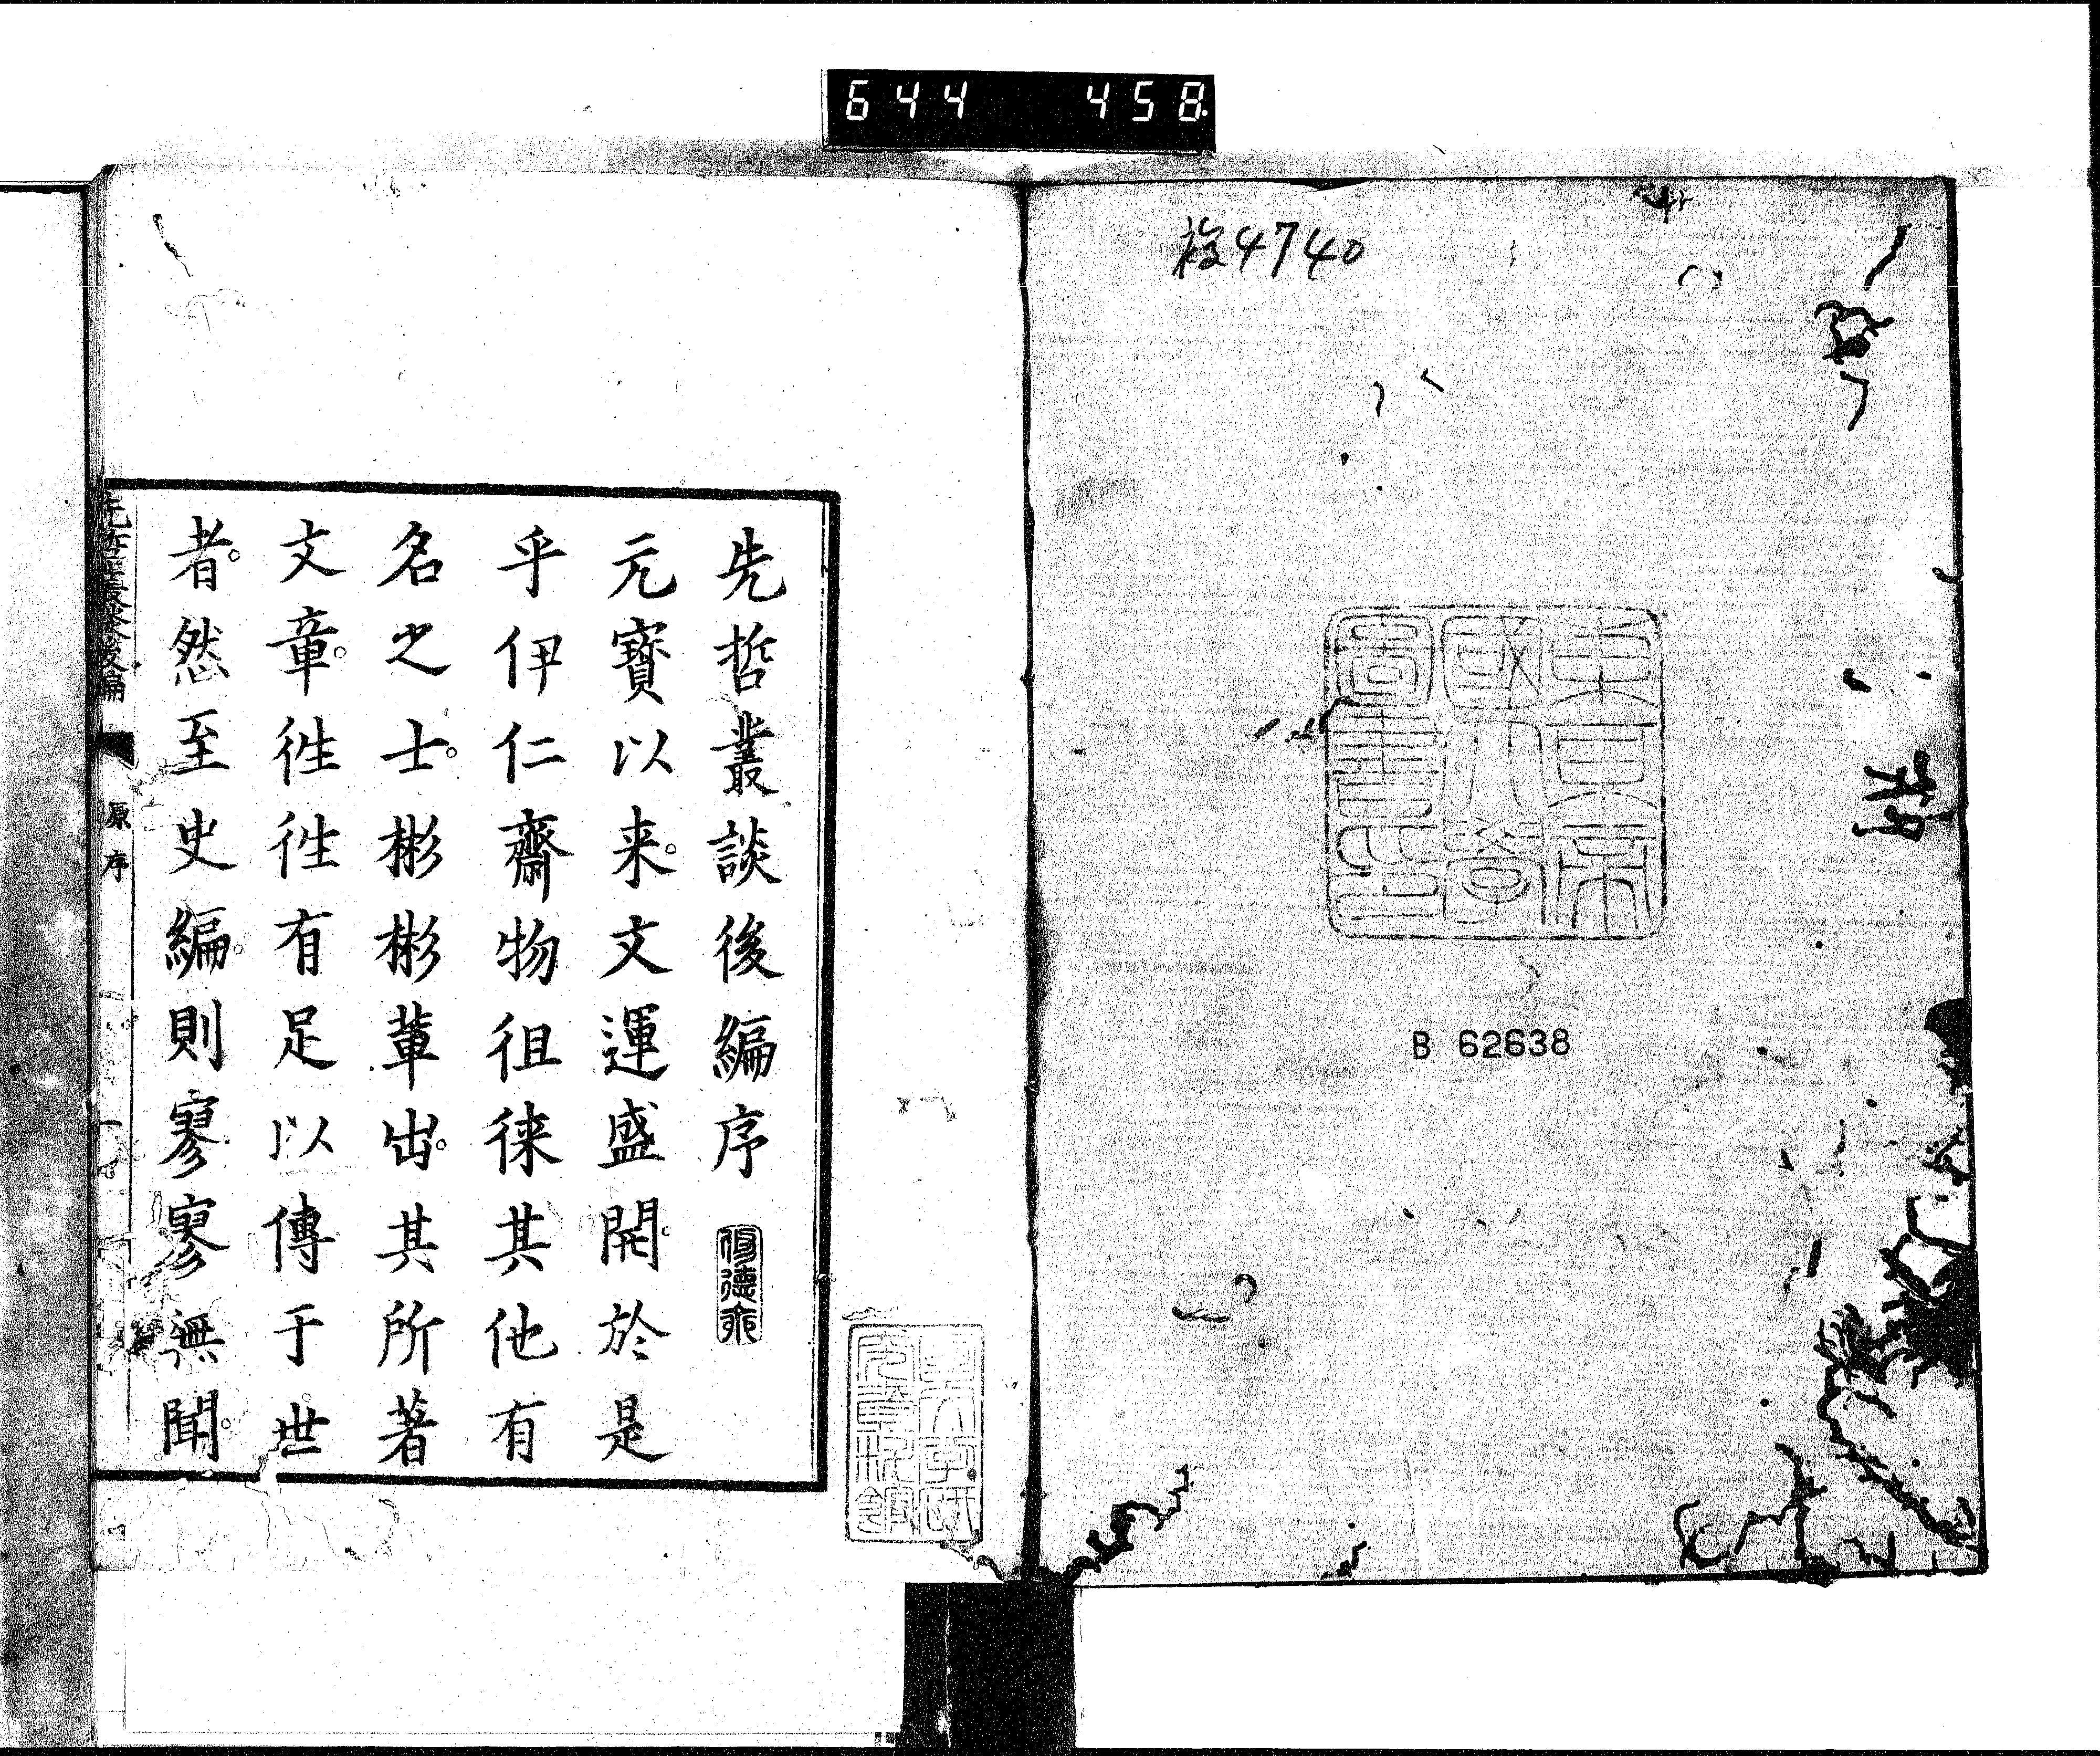 644 458
複4740
東京帝
國大學
圖書印
B 62638
先哲叢談後編序
脩德齋
元寶以来。文運盛開。於是
乎伊仁齋物徂徠其他有
名之士。彬彬輩出。其所著
文章。徃徃有足以傳于世
者。然至史編。則寥寥無聞。
先哲叢談後編
原序